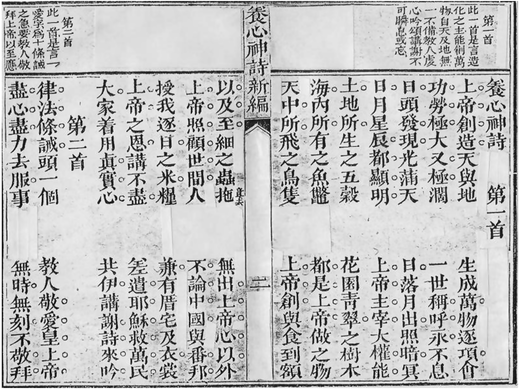 第一首
此一首是言造
化之主能創萬
物自天及地無
一不備教人虔
心吟頌講謝不
可瞬息或忘
養心神詩 第一首
上帝創造天與地 生成萬物逐項會
功勞極大又極濶 一世稱呼永不息
日頭發現光滿天 日落月出照暗冥
日月星辰都顯明 上帝主宰大權能
土地所生之五穀 花園青翠之樹木
海內所有之魚鱉 都是上帝做之物
天中所飛之鳥隻 上帝創與食到額
養心神詩新編
二
第二首
此一首是言一
愛字爲十條誡
之急要教人敬
拜上帝以至應
以及至細之蟲 無出上帝心以外
上帝照顧世間人 不論中國與番邦
授我逐日之米糧 兼有厝宅及衣裳
上帝之恩講不盡 差遣耶穌救萬民
大家着用真實心 共伊講謝詩來吟
第二首
律法條誡頭一個 教人敬愛皇上帝
盡心盡力去服事 無時無刻不敬拜